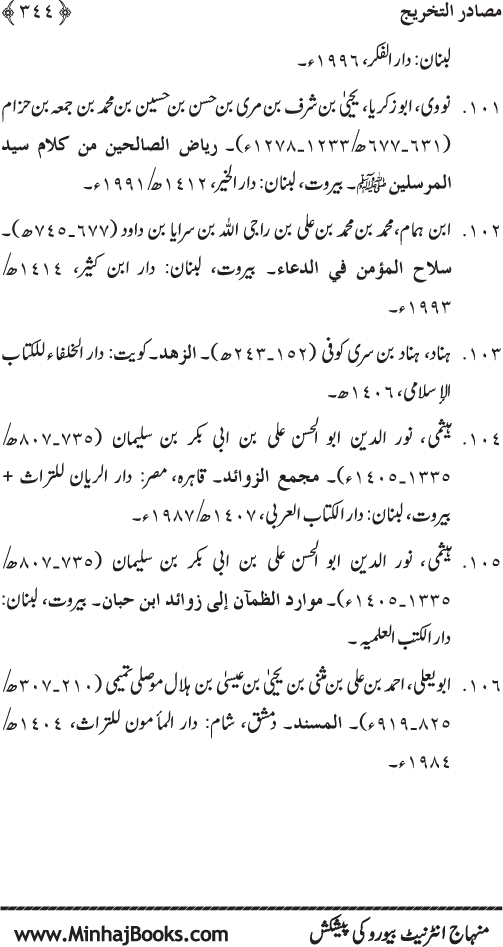 مصادر التخریج ﴿۳٤٤﴾
لبنان: دار الفکر، ۱۹۹٦ء۔
۱۰۱۔ نووی، ابو زکریا، یحییٰ بن شرف بن مری بن حسن بن حسین بن محمد بن جمعہ بن حزام
(٦۳۱۔٦۷۷ھ/۱۲۳۳۔۱۲۷۸ء)۔ ریاض الصالحین من کلام سید
المرسلین ﷺ۔ بیروت، لبنان: دار الخیر، ۱٤۱۲ھ/۱۹۹۱ء۔
۱۰۲۔ ابن ہمام، محمد بن محمد بن علی بن راجی اللہ بن سرایا بن داود (٦۷۷۔۷٤۵ھ)۔
سلاح المؤمن في الدعاء۔ بیروت، لبنان: دار ابن کثیر، ۱٤۱٤ھ/
۱۹۹۳ء۔
۱۰۳۔ ہناد، ہناد بن سری کوفی (۱۵۲۔۲٤۳ھ)۔ الزهد۔ کویت: دار الخلفاء للکتاب
الإسلامی، ۱٤۰٦ھ۔
۱۰٤۔ ہیثمی، نور الدین ابو الحسن علی بن ابی بکر بن سلیمان (۷۳۵۔۸۰۷ھ/
۱۳۳۵۔۱٤۰۵ء)۔ مجمع الزوائد۔ قاہرہ، مصر: دار الریان للتراث +
بیروت، لبنان: دار الکتاب العربی، ۱٤۰۷ھ/۱۹۸۷ء۔
۱۰۵۔ ہیثمی، نور الدین ابو الحسن علی بن ابی بکر بن سلیمان (۷۳۵۔۸۰۷ھ/
۱۳۳۵۔۱٤۰۵ء)۔ موارد الظمآن إلی زوائد ابن حبان۔ بیروت، لبنان:
دار الکتب العلمیہ ۔
۱۰٦۔ ابو یعلی، احمد بن علی بن مثنی بن یحییٰ بن عیسیٰ بن ہلال موصلی تمیمی (۲۱۰۔۳۰۷ھ/
۸۲۵۔۹۱۹ء)۔ المسند۔ دمشق، شام: دار المأمون للتراث، ۱٤۰٤ھ/
۱۹۸٤ء۔
منہاج انٹرنیٹ بیورو کی پیشکش www.MinhajBooks.com